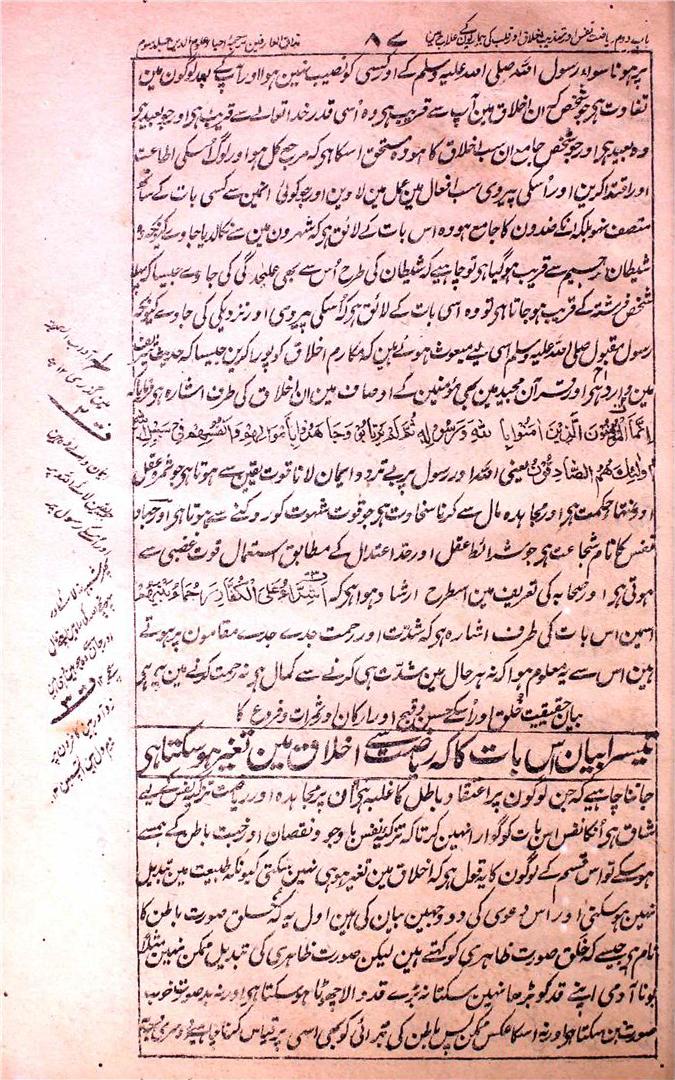 باب دوم ریاضت نفس اور تہذیب اخلاق اور قلب کی بیماریون کے علاج مین
۸۷
مذاق العارفین ترجمہ احیاء علوم الدین جلد سوم
پر ہونا سواء رسول اللہ صلی اللہ علیہ وسلم کے اور کسی کو نصیب نہین ہوا اور آپ کے بعد لوگون مین
تفاوت ہی جو شخص کہ ان اخلاق مین آپ سے قریب ہی وہ اُسی قدر خدا تعالیٰ سے قریب ہی اور جو بعید ہی
وہ بعید ہی اور جو شخص جامع ان سب اخلاق کا ہو وہ مستحق اسکا ہی کہ مرجع کل ہو اور لوگ اُسکی اطاعت
اور اقتدا کرین اور اُسکی پیروی سب افعال مین عمل مین لاوین اور جو کوئی انمین سے کسی بات کے ساتھ
متصف نہو بلکہ انکے ضدون کا جامع ہو وہ اس بات کے لائق ہی کہ شہرون مین سے نکالدیا جاوے کیونکہ وہ
شیطان رجیم سے قریب ہو گیا ہی تو چاہیے کہ شیطان کی طرح اُس سے بھی علیحدگی کی جاوے جیسا کہ پہلا
شخص فرشتہ کے قریب ہو جاتا ہی تو وہ اسی بات کے لائق ہی کہ اُسکی پیروی اور نزدیکی کی جاوے کیونکہ
رسول مقبول صلی اللہ علیہ وسلم اسی لیے مبعوث ہوئے ہین کہ مکارم اخلاق کو پورا کرین جیسا کہ حدیث شریف
مین وارد ہی اور قرآن مجید مین بھی مؤمنین کے اوصاف مین ان اخلاق کی طرف اشارہ ہو فرمایا کہ
اِنَّمَا الْمُؤْمِنُونَ الَّذِينَ اٰمَنُوْا بِاللّٰهِ وَرَسُوْلِهٖ ثُمَّ لَمْ يَرْتَابُوْا وَجَاهَدُوْا بِاَمْوَالِهِمْ وَاَنْفُسِهِمْ فِيْ سَبِيْلِ اللّٰهِ
اُولٰئِكَ هُمُ الصَّادِقُوْنَ یعنی اللہ اور رسول پر بے تردد ایمان لانا قوت یقین سے ہوتا ہی جو ثمرہ عقل
اور منتہاء حکمت ہی اور مجاہدہ مال سے کرنا سخاوت ہی جو قوت شہوت کو روکنے سے ہوتا ہی اور جہاد
نفس کا نام شجاعت ہی جو شرائط عقل اور حد اعتدال کے مطابق استعمال قوت غضبی سے
ہوتی ہی اور صحابہ کی تعریف مین اسطرح ارشاد ہوا ہی کہ اَشِدَّاءُ عَلَى الْكُفَّارِ رُحَمَاءُ بَيْنَهُمْ
اسمین اس بات کی طرف اشارہ ہی کہ شدت اور رحمت جدے جدے مقامون پر ہوتے
ہین اس سے یہ معلوم ہوا کہ نہ ہر حال مین شدت ہی کرنے سے کمال ہی نہ رحمت کرنے مین ہی ہی
بیان حقیقت خلق اور اُسکے حسن و قبح اور ارکان اور ثمرات و فروع کا
تیسرا بیان اس بات کا کہ ریاضت سے اخلاق مین تغیر ہو سکتا ہی
جاننا چاہیے کہ جن لوگون پر اعتقاد باطل کا غلبہ ہی اُن پر مجاہدہ اور ریاضت تزکیہ نفس کے لیے
شاق ہی اُنکا نفس اس بات کو گوارا نہین کرتا کہ تزکیہ نفس باوجود نقصان اور خبث باطن کے ہمسے
ہو سکے تو اس قسم کے لوگون کا یہ قول ہی کہ اخلاق مین تغیر ہو ہی نہین سکتی کیونکہ طبیعت مین تبدیل
نہین ہو سکتی اور اس دعوی کی دو وجہین بیان کی ہین اول یہ کہ خلق صورت باطن کا
نام ہی جیسے کہ خَلق صورت ظاہری کو کہتے ہین لیکن صورت ظاہری کی تبدیل ممکن نہین مثلاً
بونا آدمی اپنے قد کو بڑھا نہین سکتا نہ بڑے قد والا چھوٹا ہو سکتا ہی اور نہ بد صورت خوب
صورت بن سکتا ہی اور نہ اسکا عکس ممکن ہی پس باطن کی بُرائی کو بھی اسی پر قیاس کرنا چاہیے دوسری وجہ یہ